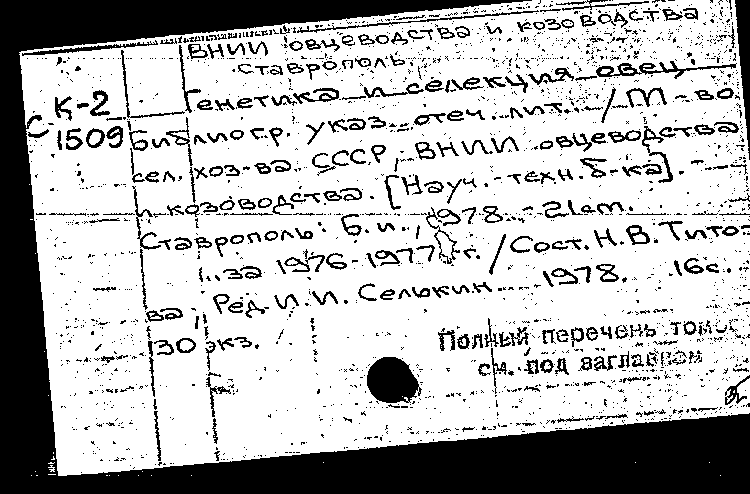 ВНИИ овцеводства и козоводства
Ставрополь.
С К-2
1509
Генетика и селекция овец:
Библиогр. указ. отеч. лит... / М-во
сел. хоз-ва СССР, ВНИИ овцеводства
и козоводства. [Науч.-техн. б-ка]. -
Ставрополь: Б.и., 1978. - 21cm.
...за 1976-1977 гг. / Сост. Н.В. Тито-
ва; Ред. И.И. Селькин. 1978. 16с.
130 экз.
Полный перечень томов
см. под заглавием